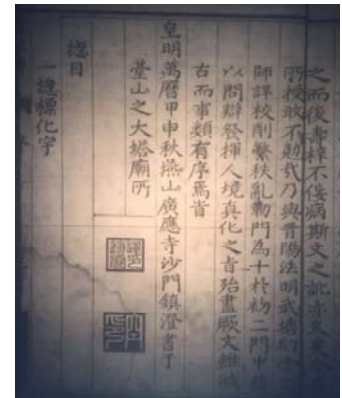 之而後壽梓不佞病斯文之訛亦久矣
所校敢不勉哉乃與晋陽法明武塘幻
師詳校削繁秩亂勒門為十於初二門中
以問辯發揮人境真化之旨殆盡厥文雖減
古而事頗有序焉旹
皇明萬曆甲申秋燕山廣應寺沙門鎮澄書于
臺山之大塔廟所
摠目
一摠標化宇